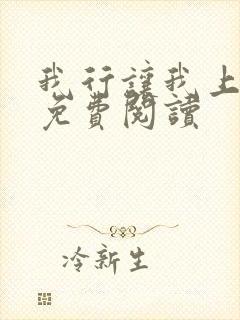 我行讓我上
免費閱讀
冷新生